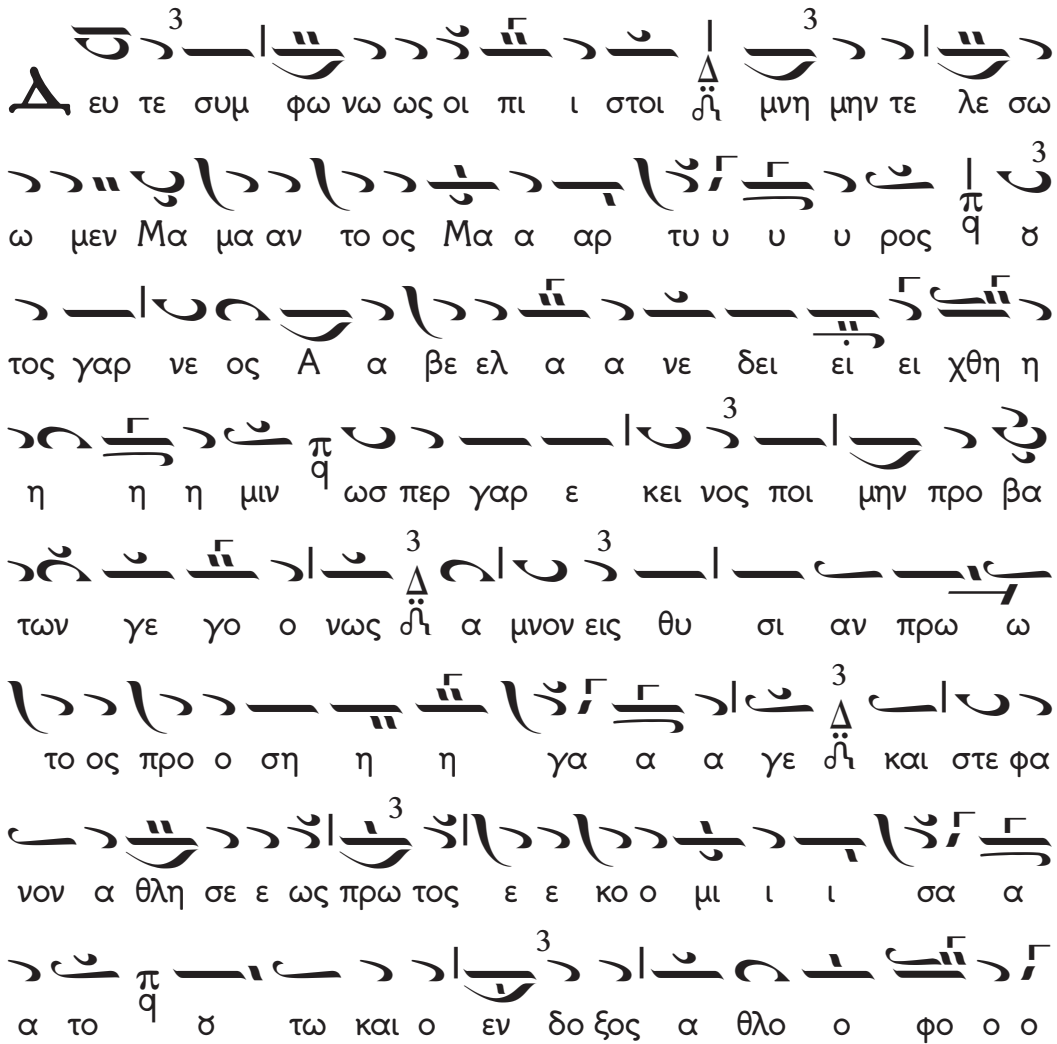 Δ ευ τε συμ φω νω ως οι πι ι στοι Δ μνη μην τε λε σω
ω μεν Μα μα αν το ος Μα α αρ τυ υ υ υ ρος π q ȣ
τος γαρ νε ος Α α βε ελ α α νε δει ει ει χθη η
η η η μιν π q ωσ περ γαρ ε κει νος ποι μην προ βα
των γε γο ο νως Δ α μνον εις θυ σι αν πρω ω
το ος προ ο ση η η γα α α γε Δ και στε φα
νον α θλη σε ε ως πρω τος ε ε κο ο μι ι ι σα α
α το π q ȣ τω και ο εν δο ξος α θλο ο φο ο ο